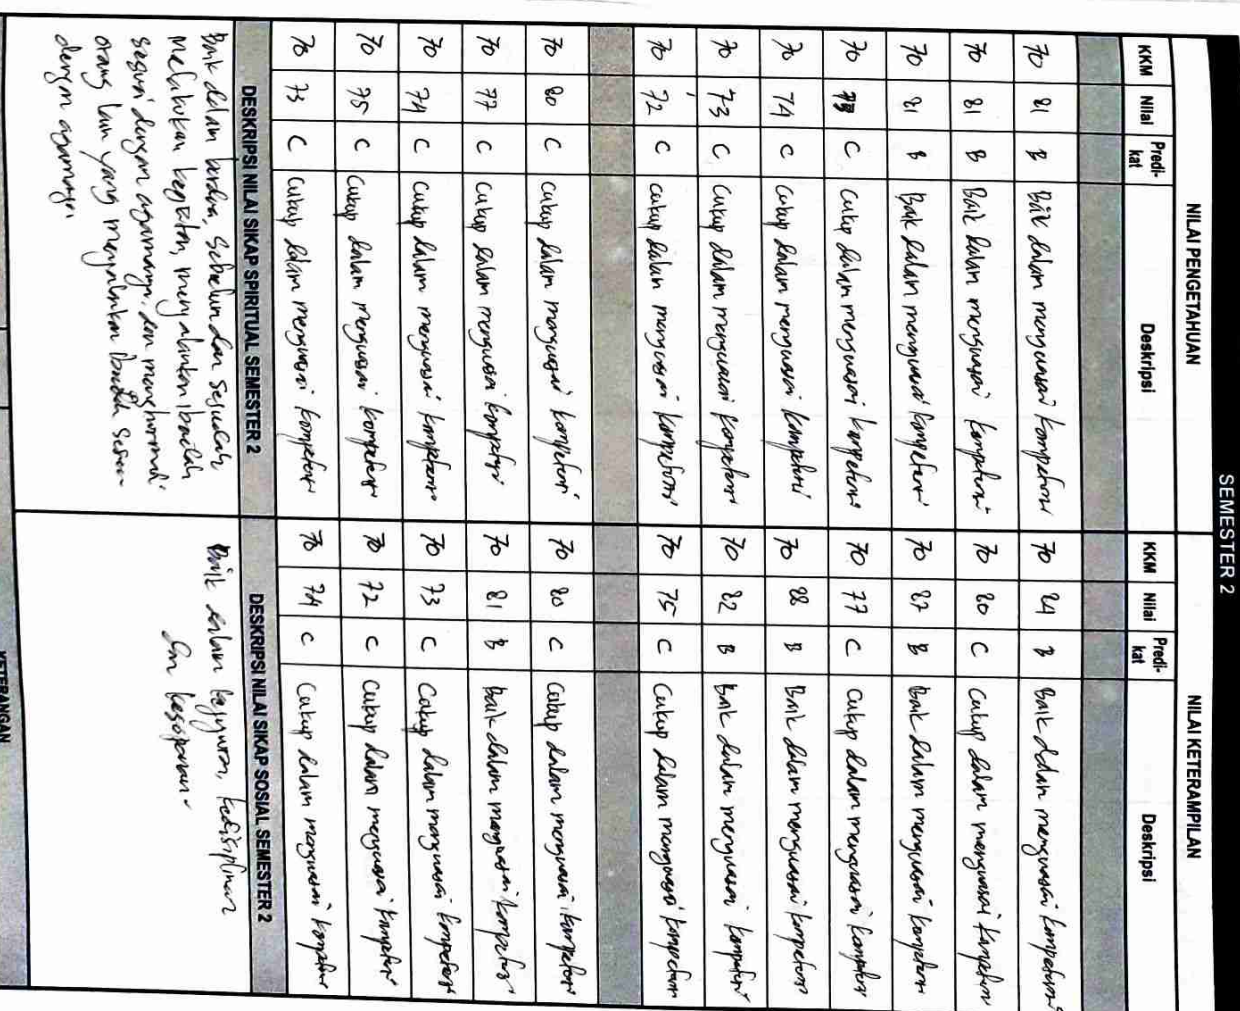 SEMESTER 2
NILAI PENGETAHUAN NILAI KETERAMPILAN
KKM Nilai Predi-kat Deskripsi KKM Nilai Predi-kat Deskripsi
70 81 B Baik dalam menguasai kompetensi 70 84 B Baik dalam menguasai kompetensi
70 81 B Baik dalam menguasai kompetensi 70 80 C Cukup dalam menguasai kompetensi
70 81 B Baik dalam menguasai kompetensi 70 87 B Baik dalam menguasai kompetensi
70 C Cukup dalam menguasai kompetensi 70 77 C Cukup dalam menguasai kompetensi
70 74 C Cukup dalam menguasai kompetensi 70 88 B Baik dalam menguasai kompetensi
70 73 C Cukup dalam menguasai kompetensi 70 82 B Baik dalam menguasai kompetensi
70 72 C Cukup dalam menguasai kompetensi 70 75 C Cukup dalam menguasai kompetensi
70 80 C Cukup dalam menguasai kompetensi 70 80 C Cukup dalam menguasai kompetensi
70 77 C Cukup dalam menguasai kompetensi 70 81 B Baik dalam menguasai kompetensi
70 74 C Cukup dalam menguasai kompetensi 70 73 C Cukup dalam menguasai kompetensi
70 75 C Cukup dalam menguasai kompetensi 70 72 C Cukup dalam menguasai kompetensi
70 73 C Cukup dalam menguasai kompetensi 70 74 C Cukup dalam menguasai kompetensi
DESKRIPSI NILAI SIKAP SPIRITUAL SEMESTER 2 DESKRIPSI NILAI SIKAP SOSIAL SEMESTER 2
Baik dalam berdoa, sebelum dan sesudah
melakukan kegiatan, menjalankan ibadah
sesuai dengan agamanya, dan menghormati
orang lain yang menjalankan ibadah sesuai
dengan agamanya
Baik dalam kejujuran, kedisiplinan
dan kesopanan.
KETERANGAN